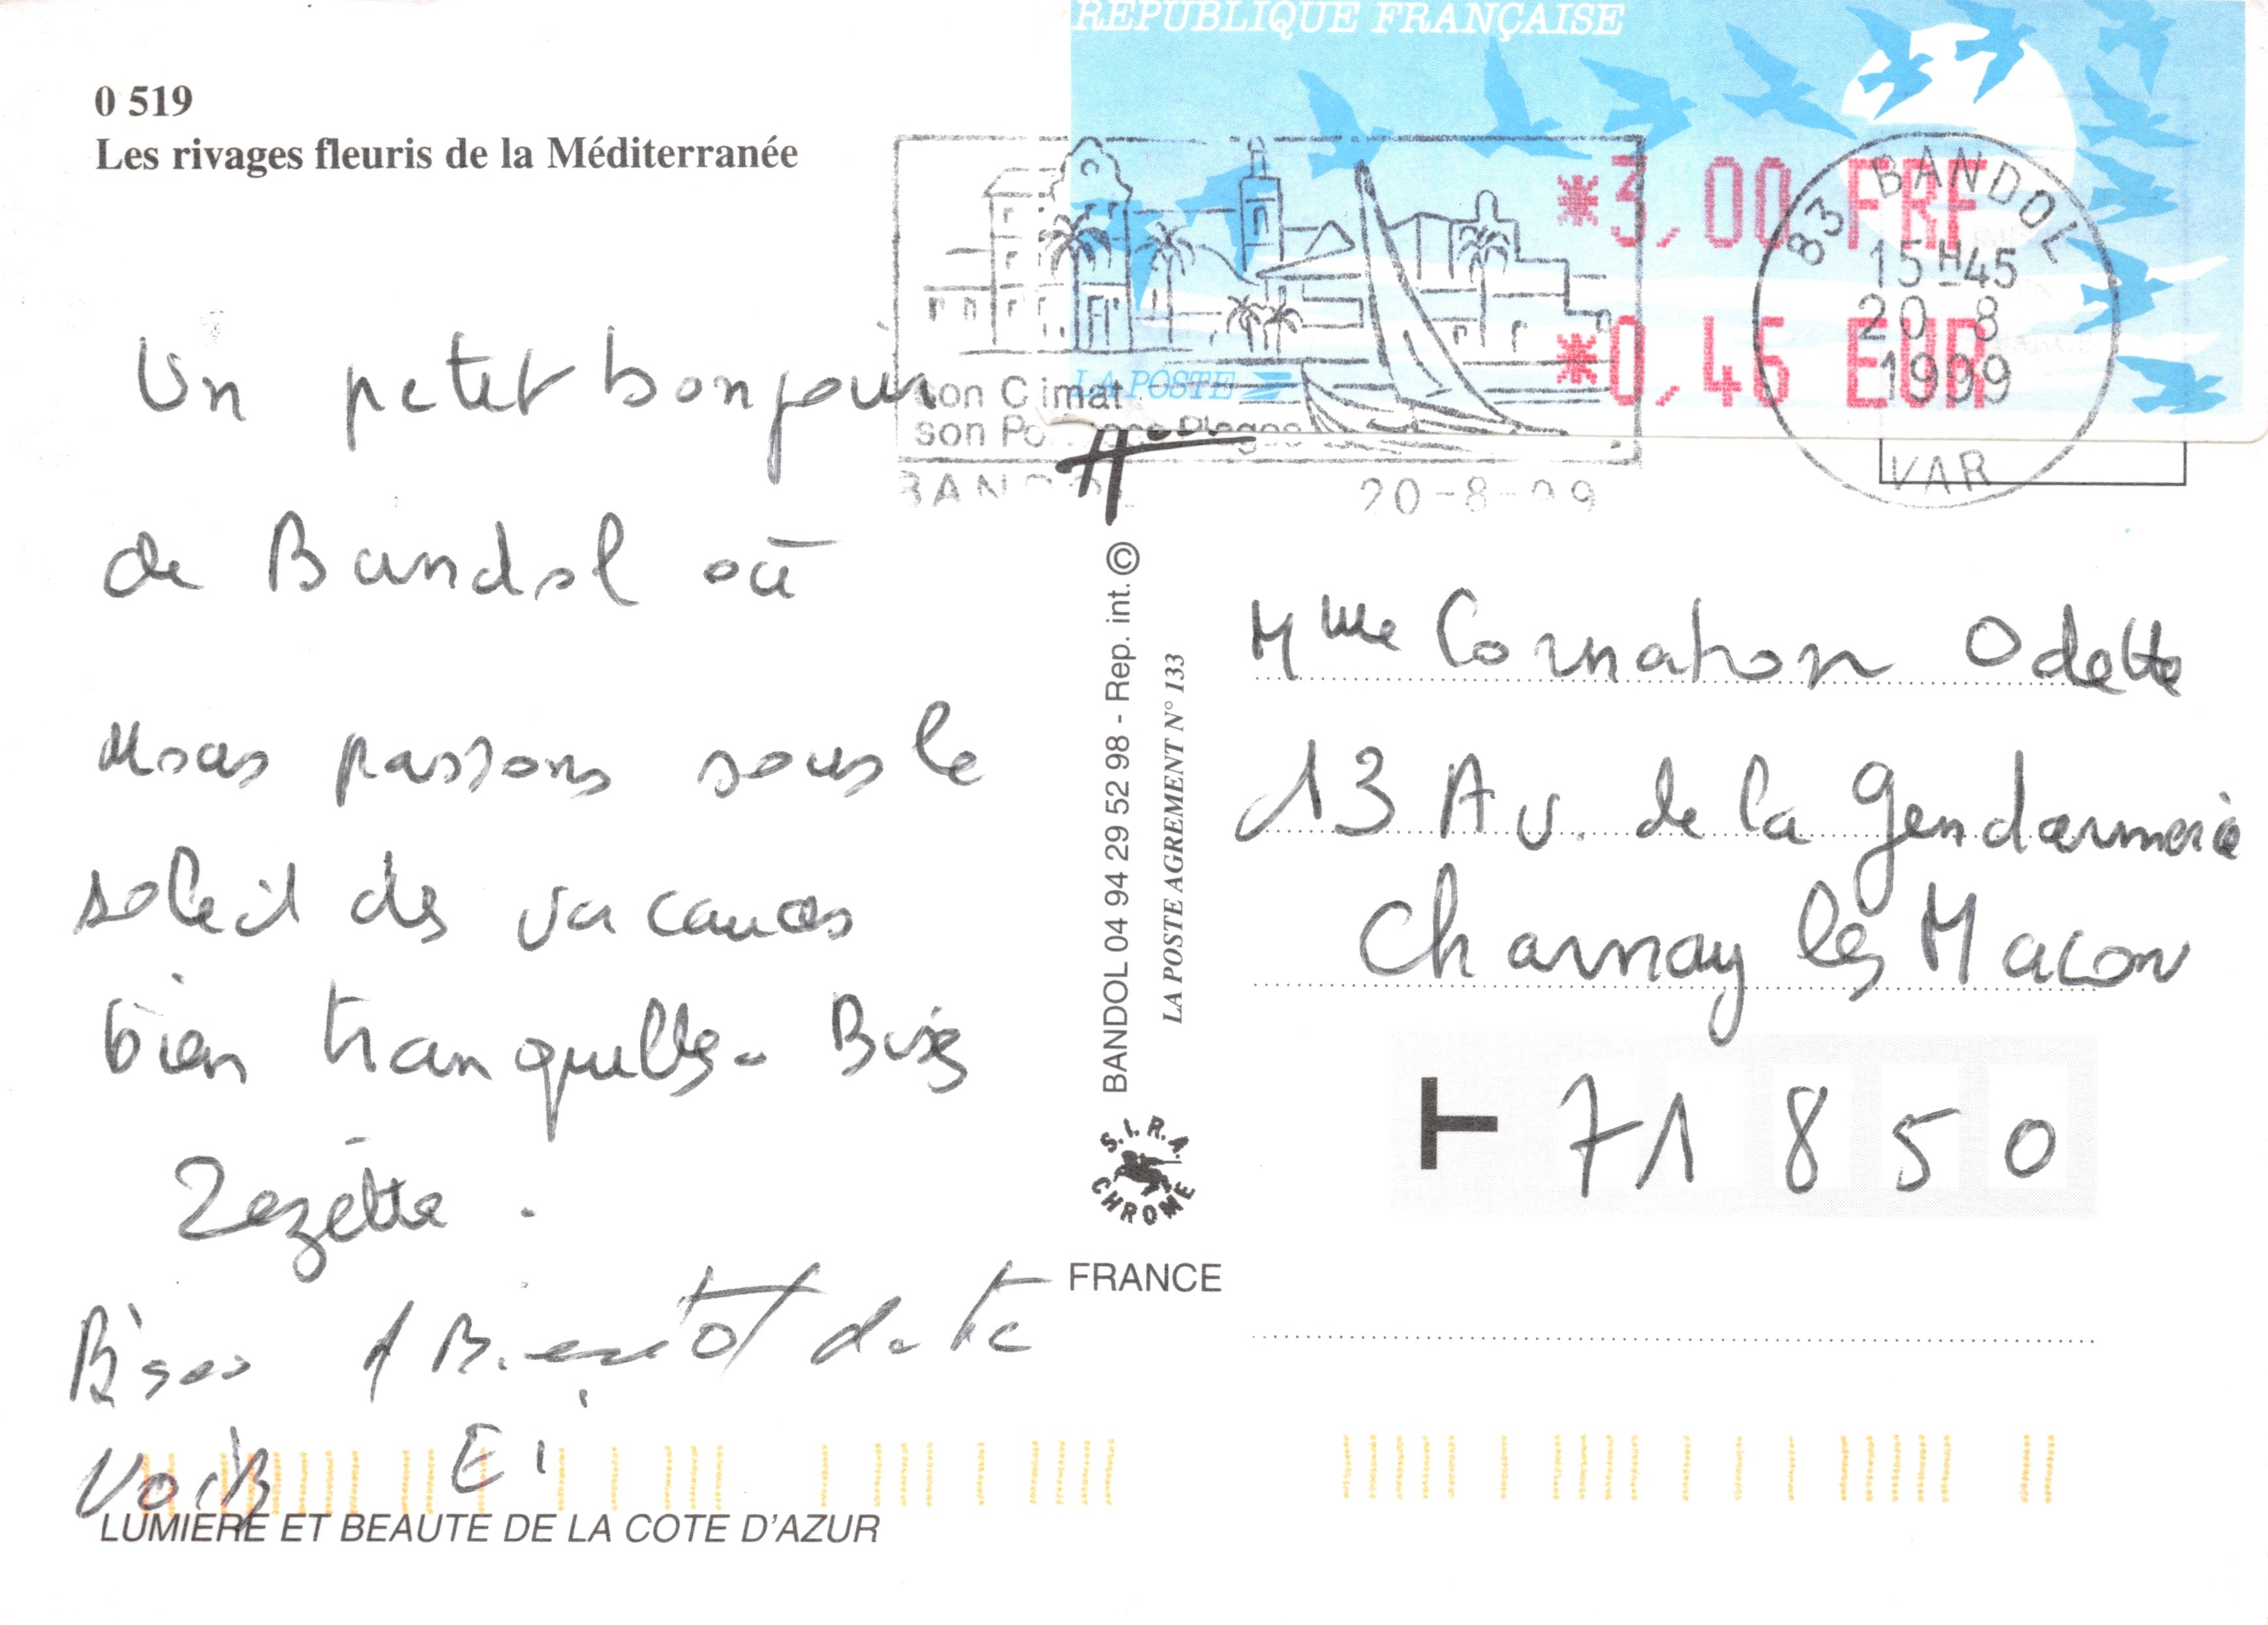 REPUBLIQUE FRANÇAISE
0 519
Les rivages fleuris de la Méditerranée
*3,00 FRF
*0,46 EUR
LA POSTE
83 BANDOL
15H45
20 8
1999
VAR
son C imat
son Po Plages
20-8- 99
Un petit bonjour
de Bandol où
nous passons sous le
soleil des vacances
bien tranquilles. Bises
Zézette.
Bises A Bientôt de te
voir
LUMIERE ET BEAUTE DE LA COTE D'AZUR
BANDOL 04 94 29 52 98 - Rep. int. ©
LA POSTE AGREMENT N° 133
S.I.R.A
CHROME
FRANCE
Mme Cornaton Odette
13 Av. de la Gendarmerie
Charnay les Macon
71850